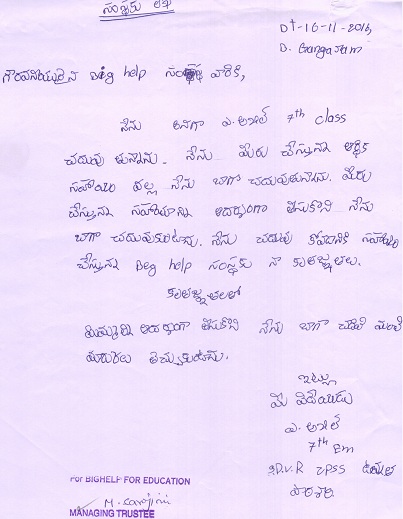 సంస్థకు లేఖ
Dt-16-11-2016,
D. Gangaram
గౌరవనీయులైన Big help సంస్థ వారికి,
నేను అనగా ఎ. అఖిల్ 7th class
చదువు తునాను. నేను మీరు చేస్తున్న ఆర్థిక
సహాయం వల్ల నేను బాగా చదువుతునాను. మీరు
చేస్తున్న సహాయాన్ని ఆదర్శంగా తీసుకొని నేను
బాగా చదువుకుంటాను. నేను చదువు కోవడానికి సహాయం
చేస్తున్న Big help సంస్థకు నా కృతజ్ఞతలు.
కృతజ్ఞతలతో
మిమ్మల్ని ఆదర్శంగా తీసుకొని నేను బాగా చదివి మంచి
మార్కులు తెచ్చుకుంటాను.
ఇట్లు
మీ విదేయుడు
ఎ. అఖిల్
7th Em
D.V.R ZPSS
పాఠశాల
For BIGHELP FOR EDUCATION
M. Sarojini
MANAGING TRUSTEE